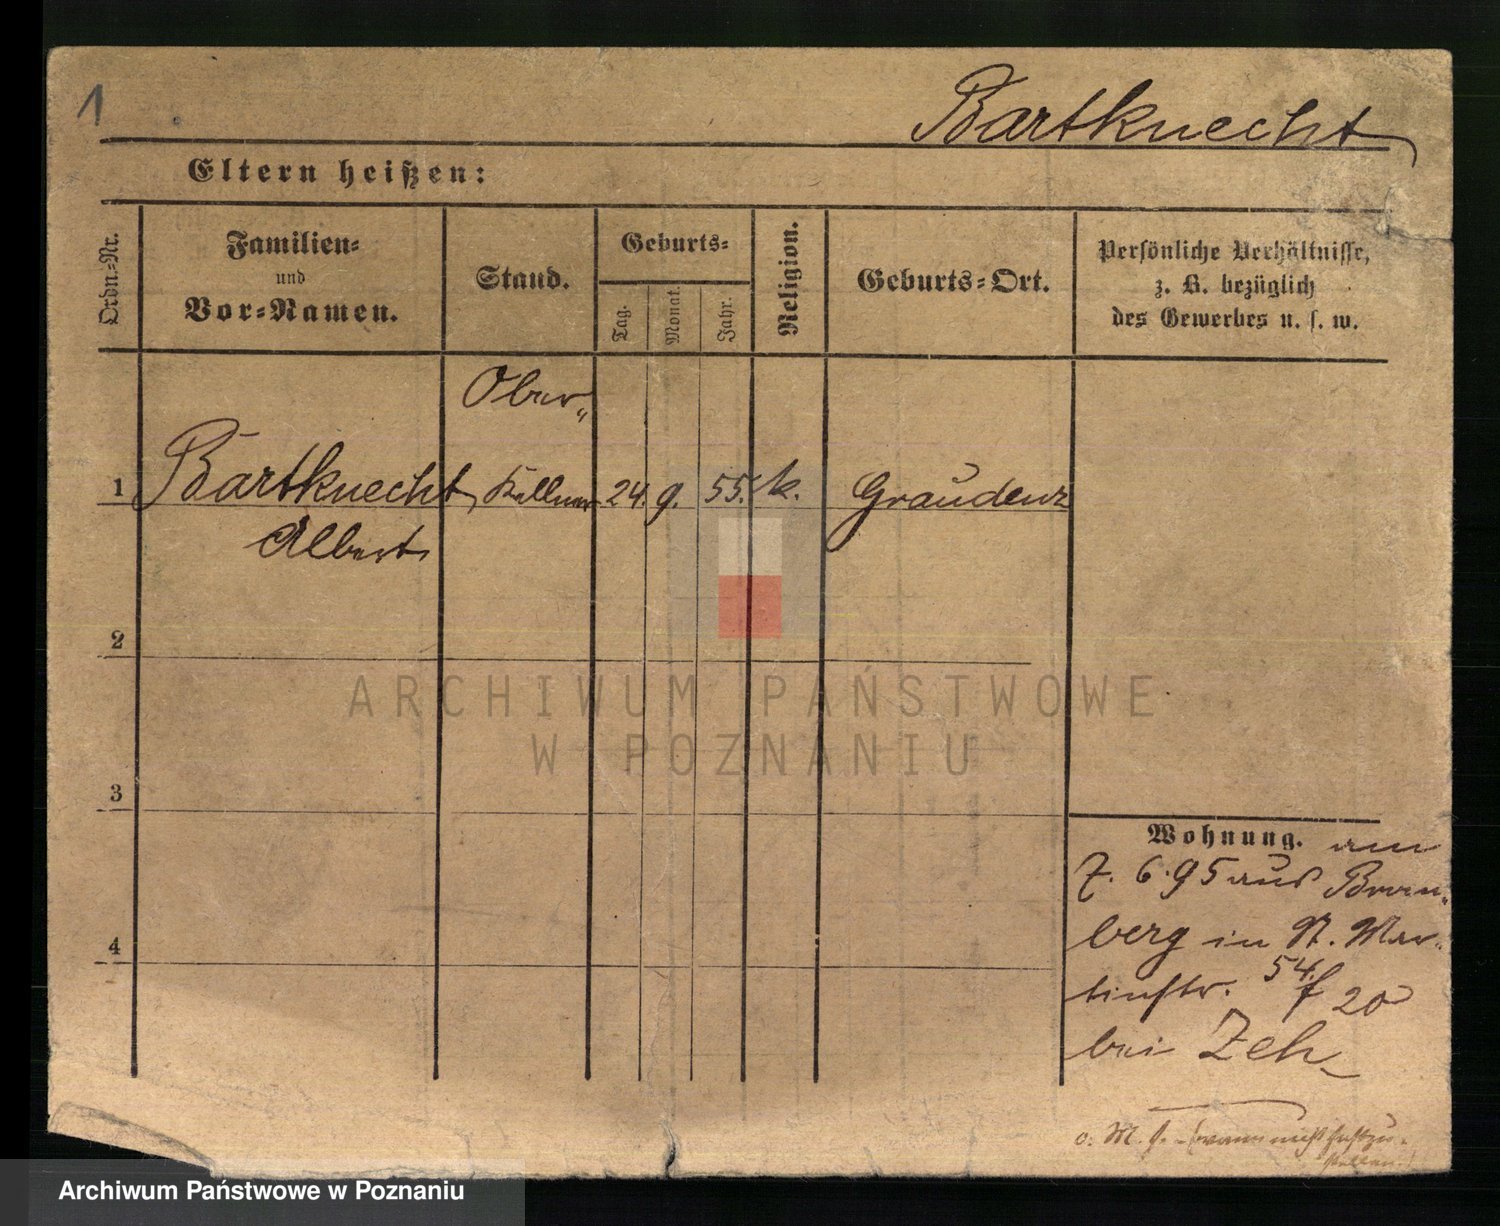 1
Bartknecht
Eltern heißen:
Ordn.=Nr.
Familien=
und
Vor=Namen.
Stand.
Geburts=
Tag.
Monat.
Jahr.
Religion.
Geburts=Ort.
Persönliche Verhältnisse,
z. B. bezüglich
des Gewerbes u. s. w.
Ober„
1 Bartknecht, Kellner 24. 9. 55. k. Graudenz
Albert
2
3
4
Wohnung. am
7. 6. 95 aus Brom„
berg in St. Mar„
tinstr. 54/f 20
bei Zeh
o. M. f. wann nicht festzu„
stellen.
ARCHIWUM PAŃSTWOWE
W POZNANIU
Archiwum Państwowe w Poznaniu